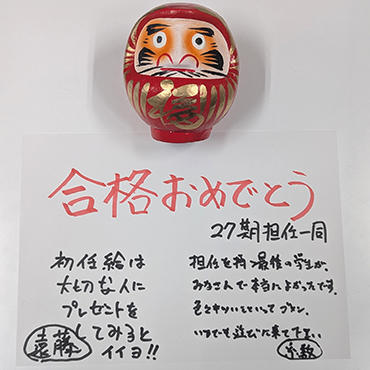 合格おめでとう
27期担任一同
初任給は
大切な人に
プレゼントを
してみると
イイヨ!!
遠藤
担任を持つ最後の学生が、
みなさんで本当によかったです。
いつでも遊びに来て下さい